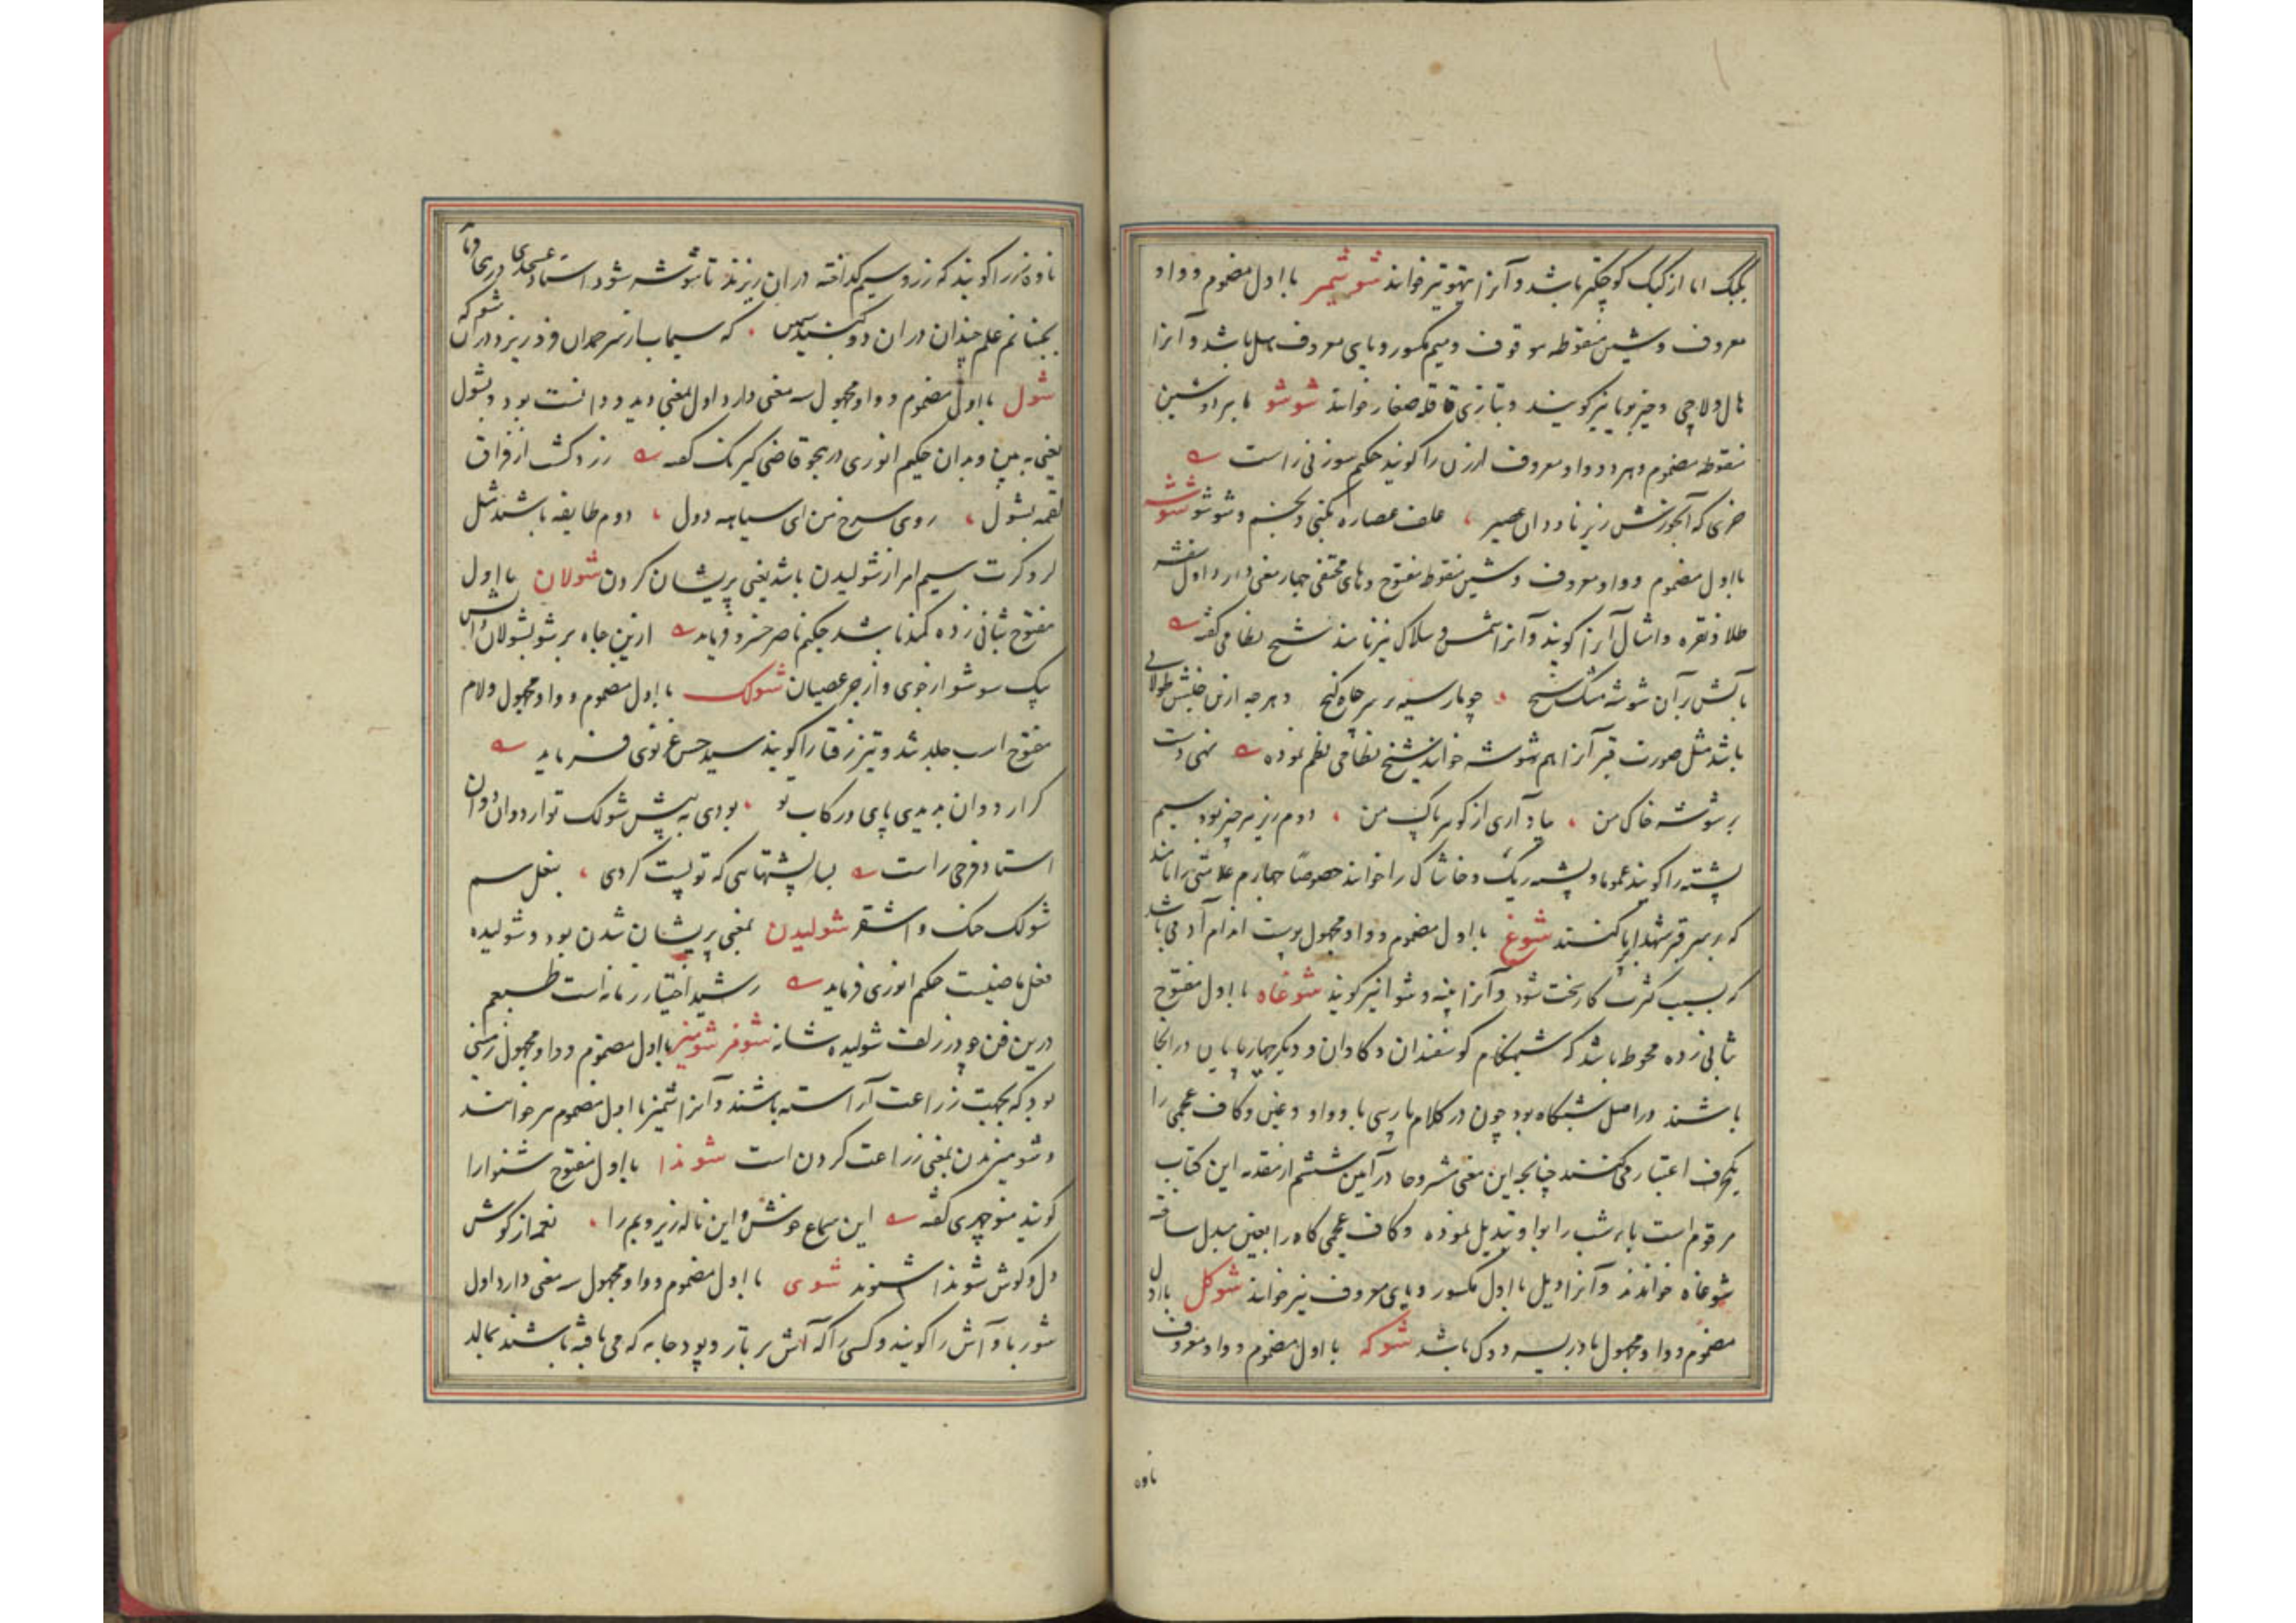 بکبک اما از کبک کوچکتر باشد و آنرا تیهو نیز خوانند شوشمیر با اول مضموم و واو
معروف و شین منقوطه موقوف و میم مکسور و یای معروف هیل باشد و آنرا
هال و لاچی و خیربوا نیز کویند و بتازی قاقله صغار خوانند شوشو با هر دو شین
منقوطه مضموم و هر دو واو معروف ارزن را کویند حکیم سوزنی راست
خری که آبخورش زیر ناودان عصیر علف عصاره بکنی و بخسم و شوشو شوشه
با اول مضموم و واو معروف و شین منقوطه مفتوح و های مختفی چهار معنی دارد اول شفشه
طلا و نقره و امثال آنرا کویند و آنرا شمش و سلاک نیز نامند شیخ نظامی کفته
بآتش بر آن شوشه مشک سنج چو مار سیه بر سر چاه کنج و هر چه ازین جنس طولانی
باشد مثل صورت قبر آنرا هم شوشه خوانند شیخ نظامی نظم نموده نهی دست
بر شوشه خاک من یاد آری از کوهر پاک من دوم ریزه هر چیز بود سیم
پشته را کویند عموما و پشته ریک و خاشاک را خوانند خصوصًا چهارم علامتی را نامند
که بر سر قبر شهدا برپا کنند شوغ با اول مضموم و واو مجهول پوست اندام آدمی باشد
که بسبب کثرت کار سخت شود و آنرا پینه و شوا نیز کویند شوغاه با اول مفتوح
ثانی زده محوطه باشد که شبهنکام کوسفندان و کاوان و دیکر چهارپایان در آنجا
باشند و در اصل شبکاه بود چون در کلام پارسی با و واو و غین و کاف عجمی را
یکحرف اعتبار می کنند چنانچه این معنی مشروحا در آیین ششم از مقدمه این کتاب
مرقوم است باء شب را بواو تبدیل نموده و کاف عجمی کاه را بغین مبدل ساخته
شوغاه خواندند و آنرا ویل با اول مکسور و یای معروف نیز خوانند شوکل با اول
مضموم و واو مجهول بادریسه دوک باشد شوکه با اول مضموم و واو معروف
ناوه
ناوه زر را کویند که زر و سیم کداخته در آن ریزند تا شوشه شود استاد عسجدی در هجا
شول با اول مضموم و واو مجهول سه معنی دارد اول بمعنی دید و دانست بود و بشول
یعنی به بین و بدان حکیم انوری در هجو قاضی کیرنک کفته زرد کشت از فراق
لقمه بشول روی سرخ من ای سیاهه دول دوم طایفه باشند مثل
لر و کرت سیم امر از شولیدن باشد یعنی پریشان کردن شولان با اول
مفتوح بثانی زده کمند باشد حکیم ناصر خسرو فرماید ازین چاه بر شو بشولان دانش
یک سو شو از جوی و از جر عصیان شولک با اول مضموم و واو مجهول و لام
مفتوح اسب جلد تند و تیز رفتار را کویند سید حسن غزنوی فرماید
استاد فرخی راست بسا پشتهایی که تو پست کردی بنعل سم
شولک خنک و اشقر شولیدن بمعنی پریشان شدن بود و شولیده
فعل ماضیست حکیم انوری فرماید رشید اختیار زمانه است طبعم
درین فن چو در زلف شولیده شانه شومز شومیز با اول مضموم و واو مجهول زمینی
بود که بجهت زراعت آراسته باشند و آنرا شمیز با اول مضموم هم خوانند
و شومیزیدن بمعنی زراعت کردن است شوندا با اول مفتوح شنوا را
کویند منوچهری کفته این سماع خوش و این ناله زیر و بم را نغمه از کوش
دل و کوش شوندا شنوند شوی با اول مضموم و واو مجهول سه معنی دارد اول
شوربا و آش را کویند و کسی را که آش بر تار و پود جامه که می بافته باشند بمالد